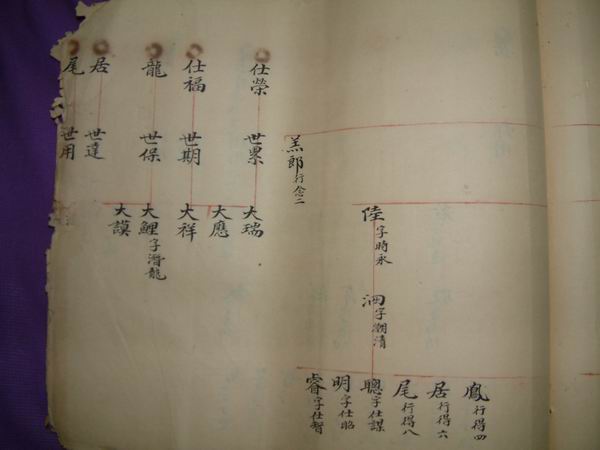 鳳行得四
居行得六
尾行得八
陸字時永
泗字潮清
聰字仕謀
明字仕昭
睿字仕智
羔郎行念二
仕榮
世累
大瑞
大應
仕福
世期
大祥
龍
世保
大鯉字潛龍
大謨
居
世達
尾
世用